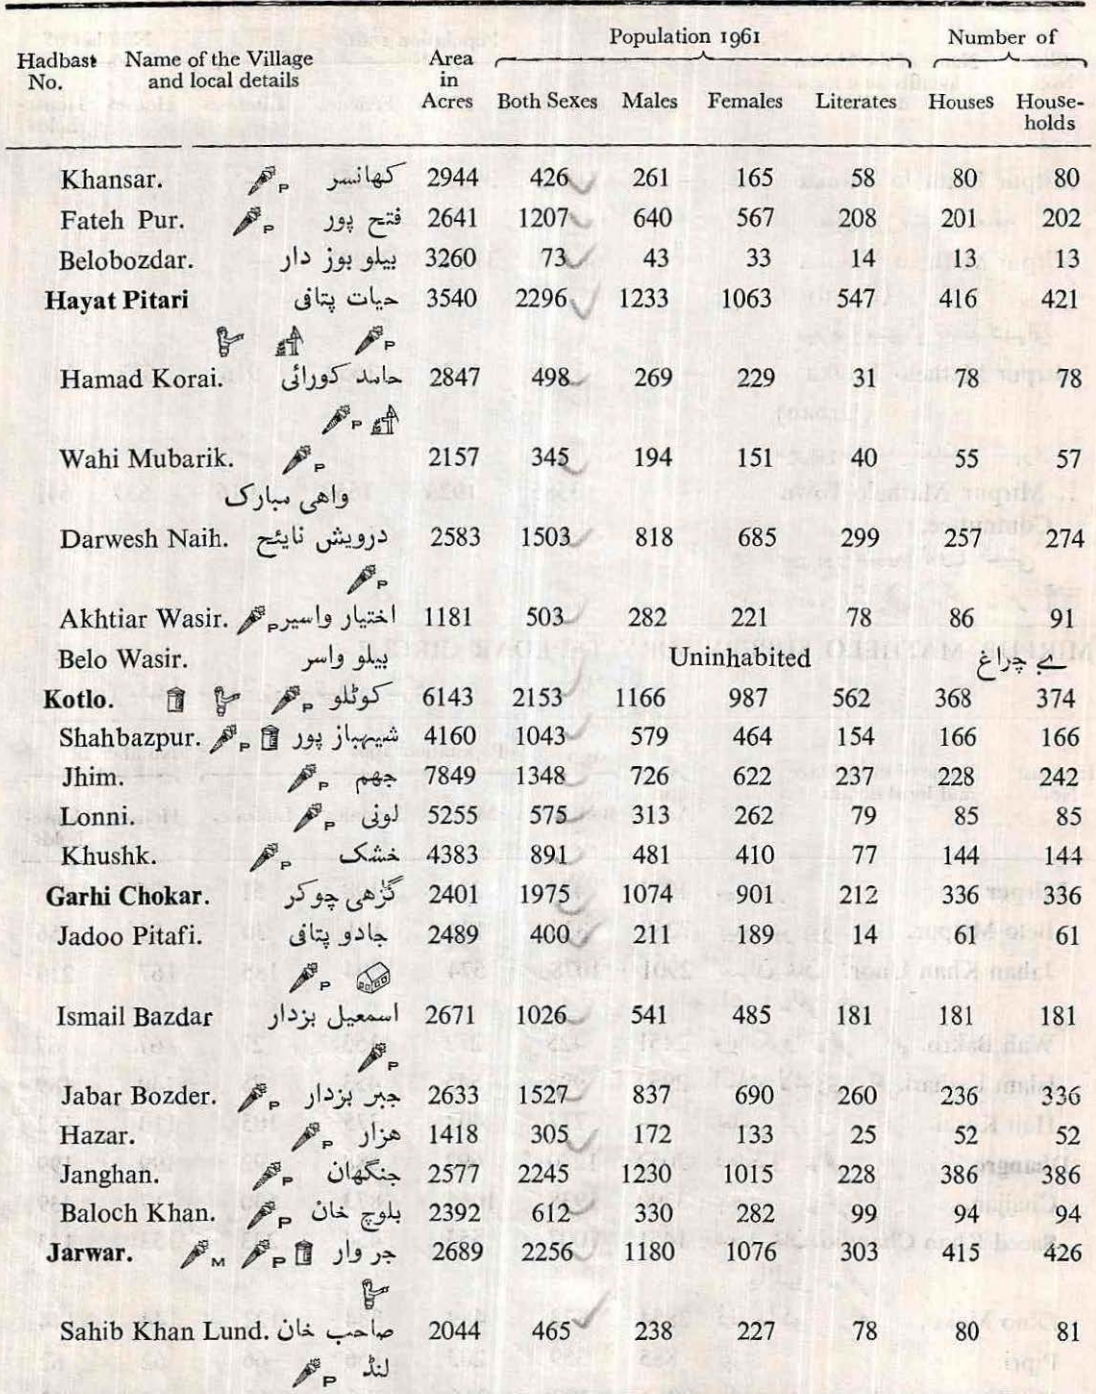 Population 1961 Number of
Hadbast No. Name of the Village and local details Area in Acres Both Sexes Males Females Literates Houses House-holds
Khansar. P کھانسر 2944 426 261 165 58 80 80
Fateh Pur. P فتح پور 2641 1207 640 567 208 201 202
Belobozdar. بیلو بوز دار 3260 73 43 33 14 13 13
Hayat Pitari حیات پتافی 3540 2296 1233 1063 547 416 421
P
Hamad Korai. حامد کورائی 2847 498 269 229 31 78 78
P
Wahi Mubarik. P 2157 345 194 151 40 55 57
واھی مبارک
Darwesh Naih. درویش نایئح 2583 1503 818 685 299 257 274
P
Akhtiar Wasir. P اختیار واسیر 1181 503 282 221 78 86 91
Belo Wasir. بیلو واسر Uninhabited بے چراغ
Kotlo. P کوٹلو 6143 2153 1166 987 562 368 374
Shahbazpur. P شیہباز پور 4160 1043 579 464 154 166 166
Jhim. P جھم 7849 1348 726 622 237 228 242
Lonni. P لونی 5255 575 313 262 79 85 85
Khushk. P خشک 4383 891 481 410 77 144 144
Garhi Chokar. گڑھی چوکر 2401 1975 1074 901 212 336 336
Jadoo Pitafi. جادو پتافی 2489 400 211 189 14 61 61
P
Ismail Bazdar اسمعیل بزدار 2671 1026 541 485 181 181 181
P
Jabar Bozder. P جبر بزدار 2633 1527 837 690 260 236 336
Hazar. P ھزار 1418 305 172 133 25 52 52
Janghan. P جنگھان 2577 2245 1230 1015 228 386 386
Baloch Khan. P بلوچ خان 2392 612 330 282 99 94 94
Jarwar. M P جر وار 2689 2256 1180 1076 303 415 426
Sahib Khan Lund. صاحب خان 2044 465 238 227 78 80 81
P لنڈ